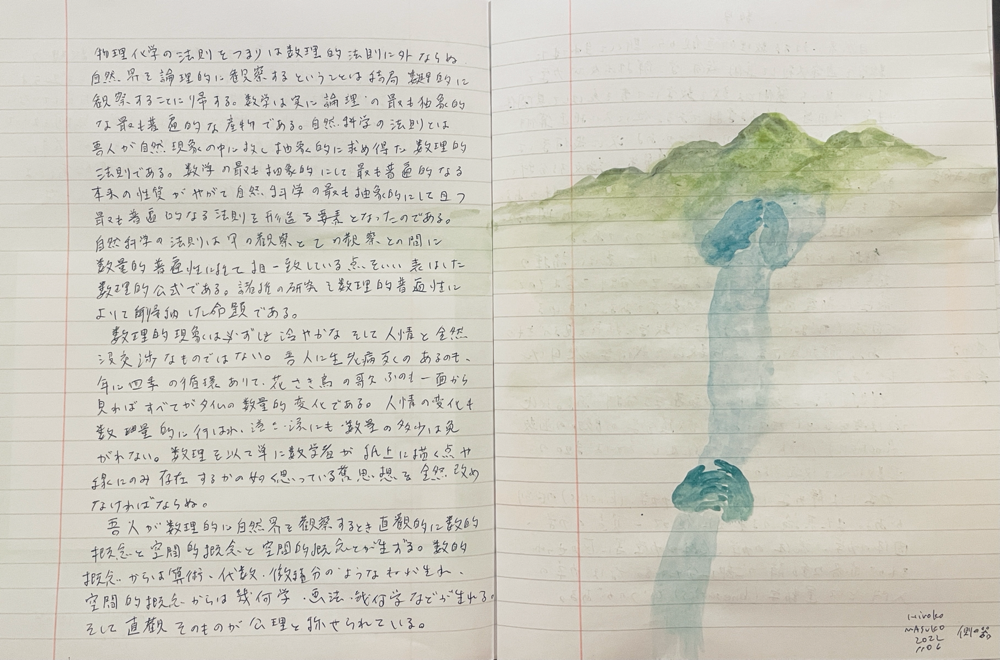 物理化学の法則をつまりは数理的法則に外ならぬ
自然界を論理的に観察するということは結局数理的に
観察することに帰する。数学は実に論理の最も抽象的
な最も普遍的な産物である。自然科学の法則とは
吾人が自然現象の中に 抽象的に求め得た数理的
法則である。数学の最も抽象的にして最も普遍的なる
本来の性質がやがて自然科学の最も抽象的にして且つ
最も普遍的なる法則を形造る要素となったのである。
自然科学の法則は の観察と の観察との間に
数量的普遍性に於て相一致している点をいい表はした
数理的公式である。諸種の研究を数理的普遍性に
よりて 納した命題である。
数理的現象は必ずしも冷やかなそして人情と全然
没交渉なものではない。吾人に生死病 のあるのも、
年に四季の循環ありて、花さき鳥の歌ふのも一面から
見ればすべてが の数量的変化である。人情の変化も
数理量的に行はれ、 にも数量の多少は免
がれない。数理を以て単に数学者が紙上に描く点や
線にのみ存在するかの如く思っている 思想を全然改め
なければならぬ。
吾人が数理的に自然界を観察するとき直観的に数的
概念と空間的概念と空間的概念とが生ずる。数的
概念からは算術、代数、微積分のようなものが生れ、
空間的概念からは幾何学・画法・幾何学などが生れる。
そして直観そのものが公理と称せられている。
Hiroko
MASUKO
2022
1106